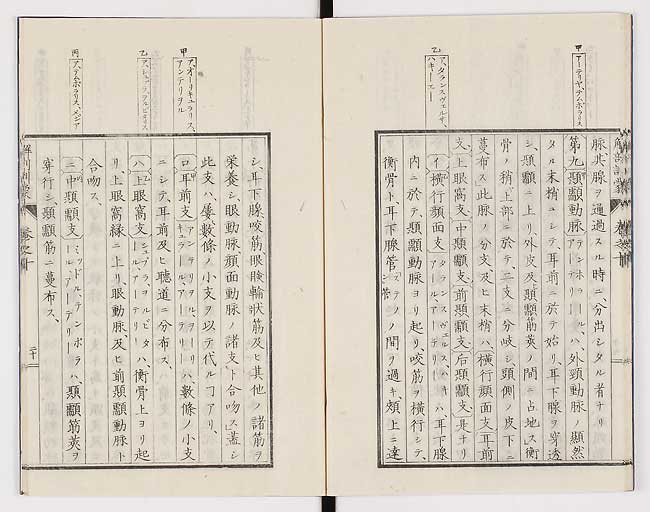 甲 アーテリヤ、テムポラリス
脉其腺ヲ過過スル時ニ分出シタル者ナリ
第九顳顬動脉 テンポラール、アーテリー ハ外頸動脉ノ顯然
タル末梢ユシテ、耳前ニ於テ始リ、耳下腺ヲ穿透
シ、顳顬ニ上リ、外皮及ヒ顳顬筋莢ノ間ニ占地ス衡
骨ノ稍上部ニ於テ二支ニ分岐シ頭側ノ皮下ニ
蔓布ス此脉ノ分支、及ヒ末梢ハ、横行顔面支耳前
支、上眼窩支、中顳顬支、前顳顬支、后顳顬支、是ナリ
乙 ア、タランスヴェルサ、ハキーエー
イ 横行顔面支 タランスヴェルスハキアール、アーテリー ハ、耳下腺
内ニ於テ顳顬動脉ヨリ起リ咬筋ヲ横行シテ、
衡骨ト、耳下腺管 ステノン管 ノ間ヲ過キ、頬上ニ達
シ耳下腺咬筋眼瞼輪状筋及ヒ其他ノ諸筋ヲ
栄養シ、眼動脉顔面動脉ノ諸支ト合吻ス蓋シ
此支ハ、屡數條ノ小支ヲ以テ代ルヿアリ、
甲 ア、オーリキュラリス、アンテリヲル
ロ 耳前支 アンテリヲル、ヲーリキュラール、アーテリー ハ數條ノ小支
ニシテ、耳前及ヒ聽道ニ分布ス、
乙 ア、シュプラヲルビタリス
ハ 上眼窩支 シュプラ、ヲルビタール、アーテリー ハ、衡骨上ヨリ起
リ、上眼窩縁ニ上リ、眼動脉、及ヒ前顳顬動脉ト
合吻ス、
丙 ア、テムポラリス、メジア
ニ 中顳顬支 ミッドル、テンポラール、アーテリー ハ、顳顬筋莢ヲ
穿行シ顳顬筋ニ蔓布ス、
卷之十
二十